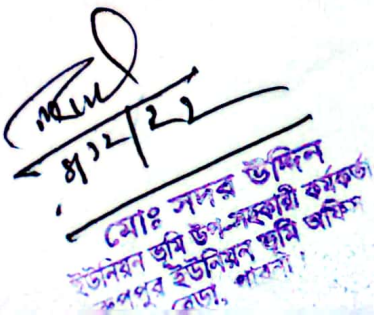 ৪/১২/২২
মোঃ সদর উদ্দিন
ইউনিয়ন ভূমি উপ-সহকারী কর্মকর্তা
রূপপুর ইউনিয়ন ভূমি অফিস
বেড়া, পাবনা।